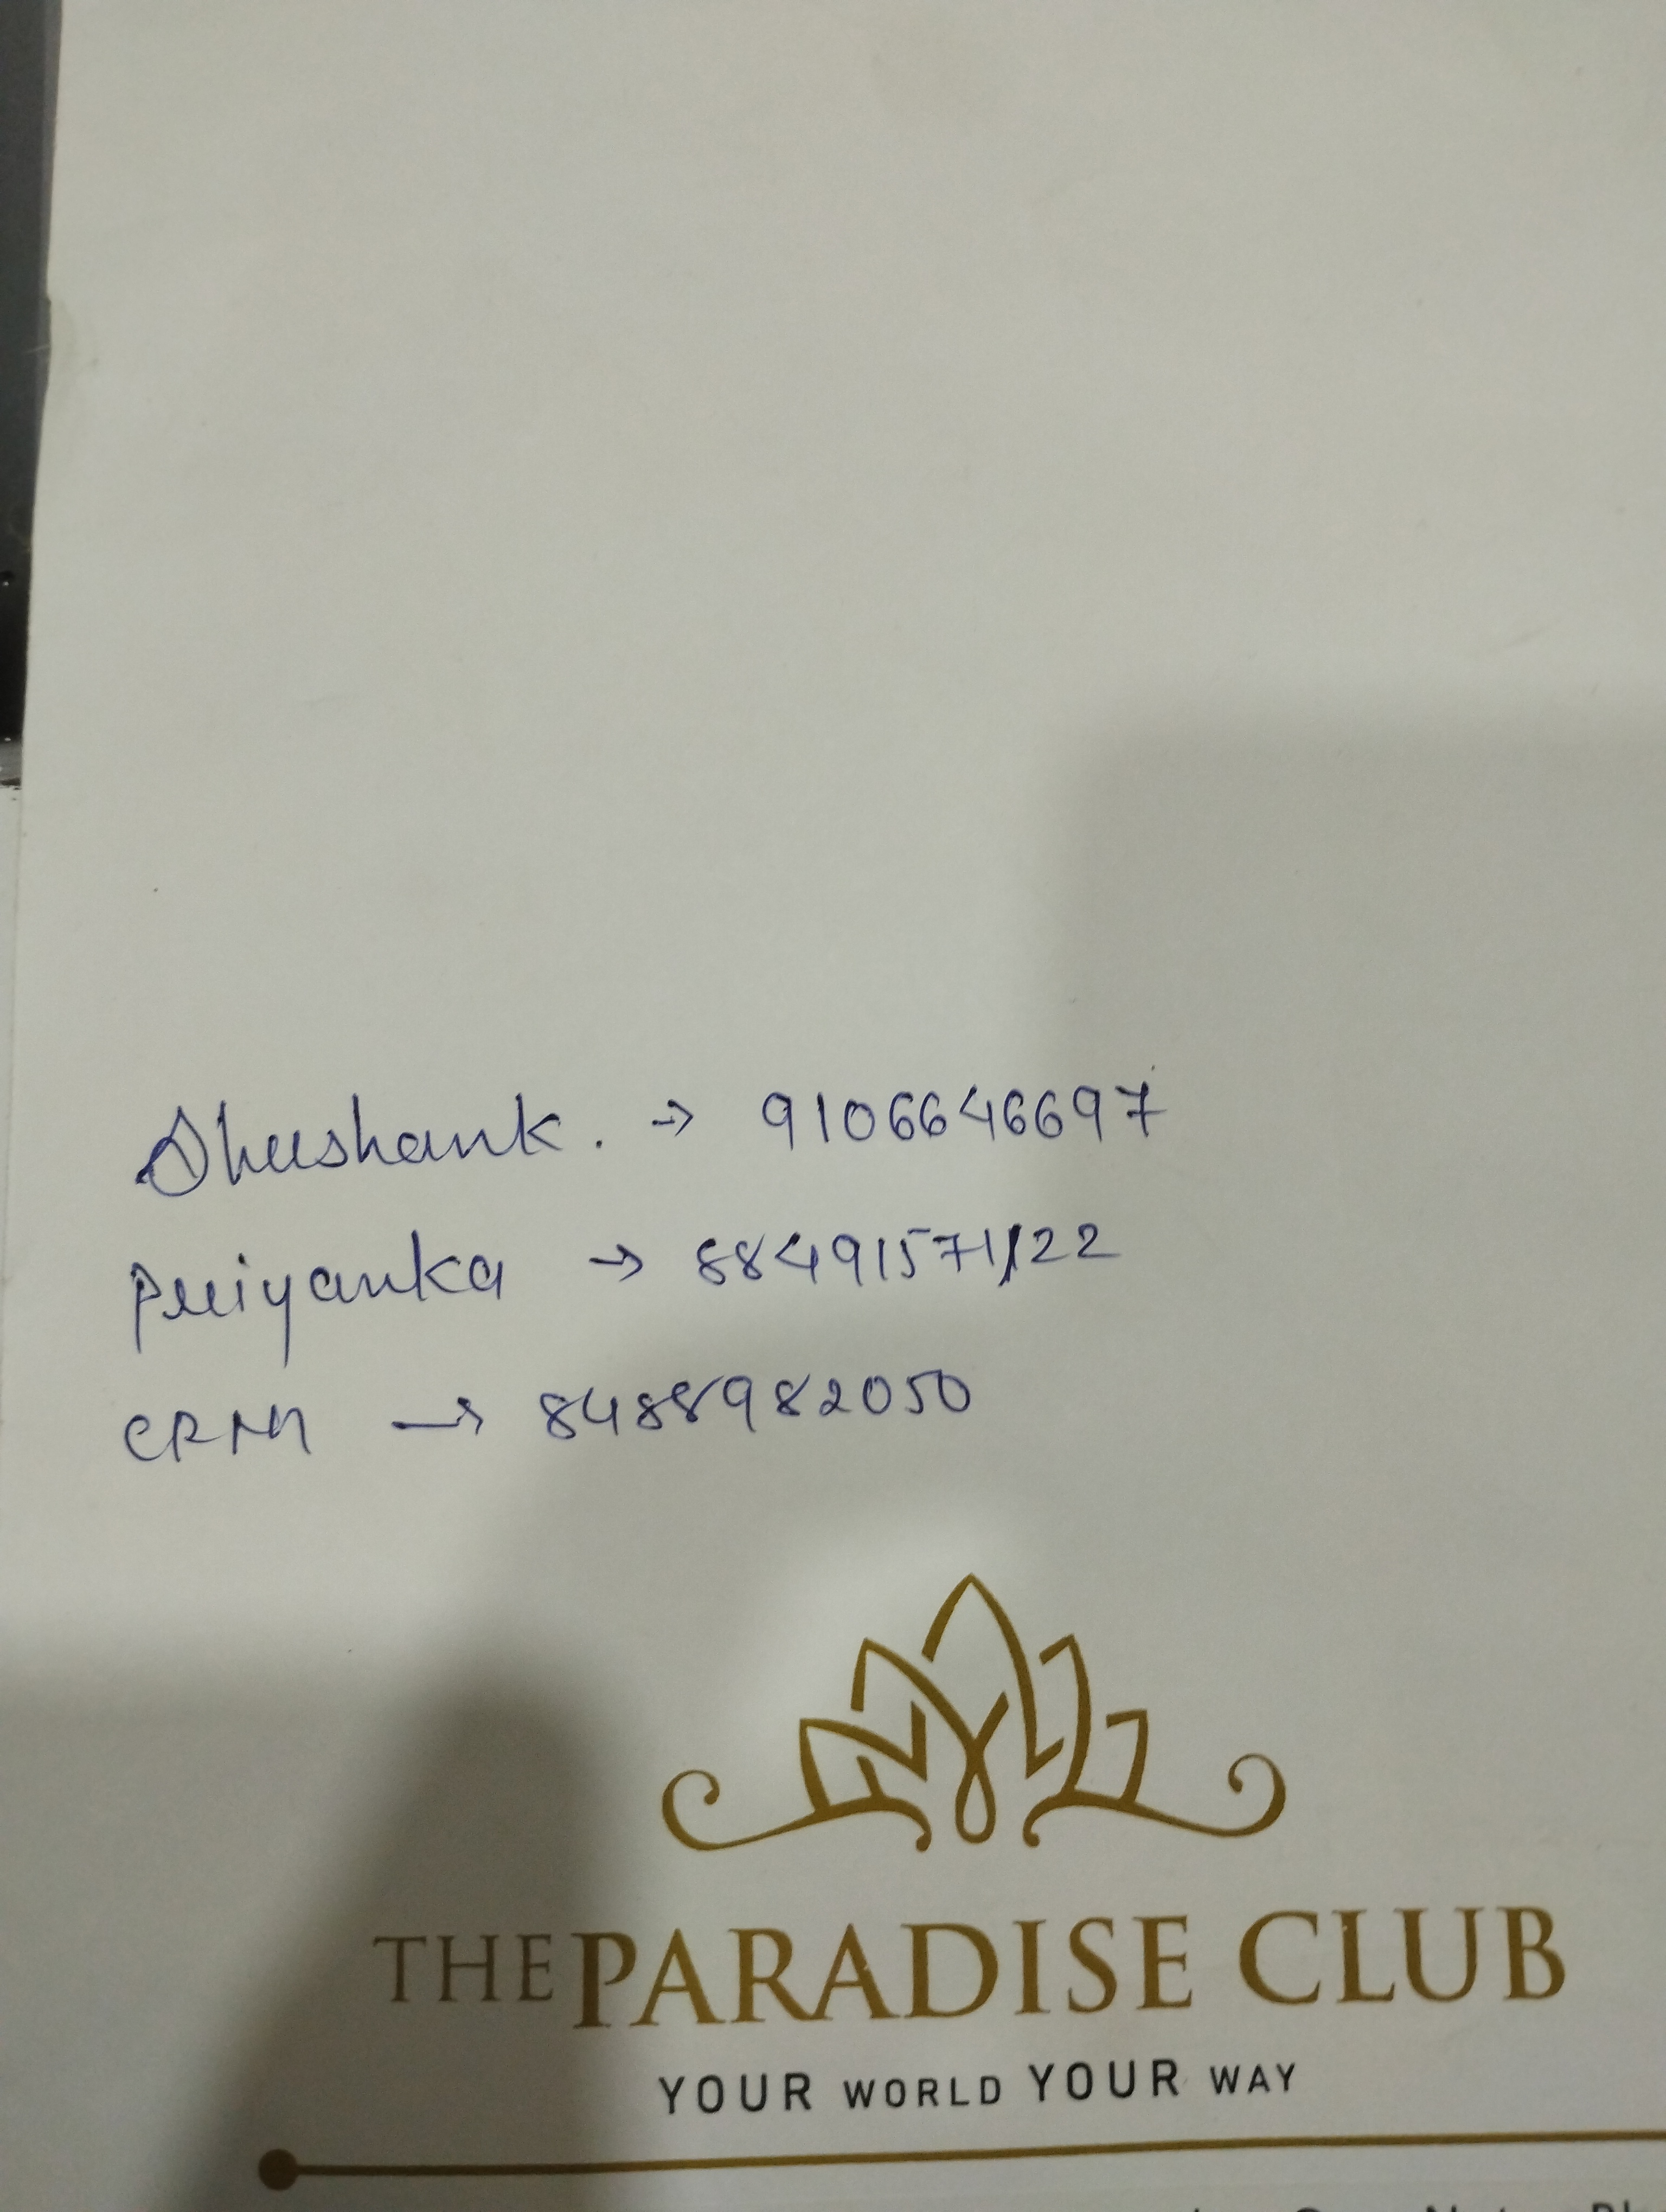 Shreshank. → 9106646697
Priyanka → 8849157122
CRM → 8488982050
THE PARADISE CLUB
YOUR WORLD YOUR WAY